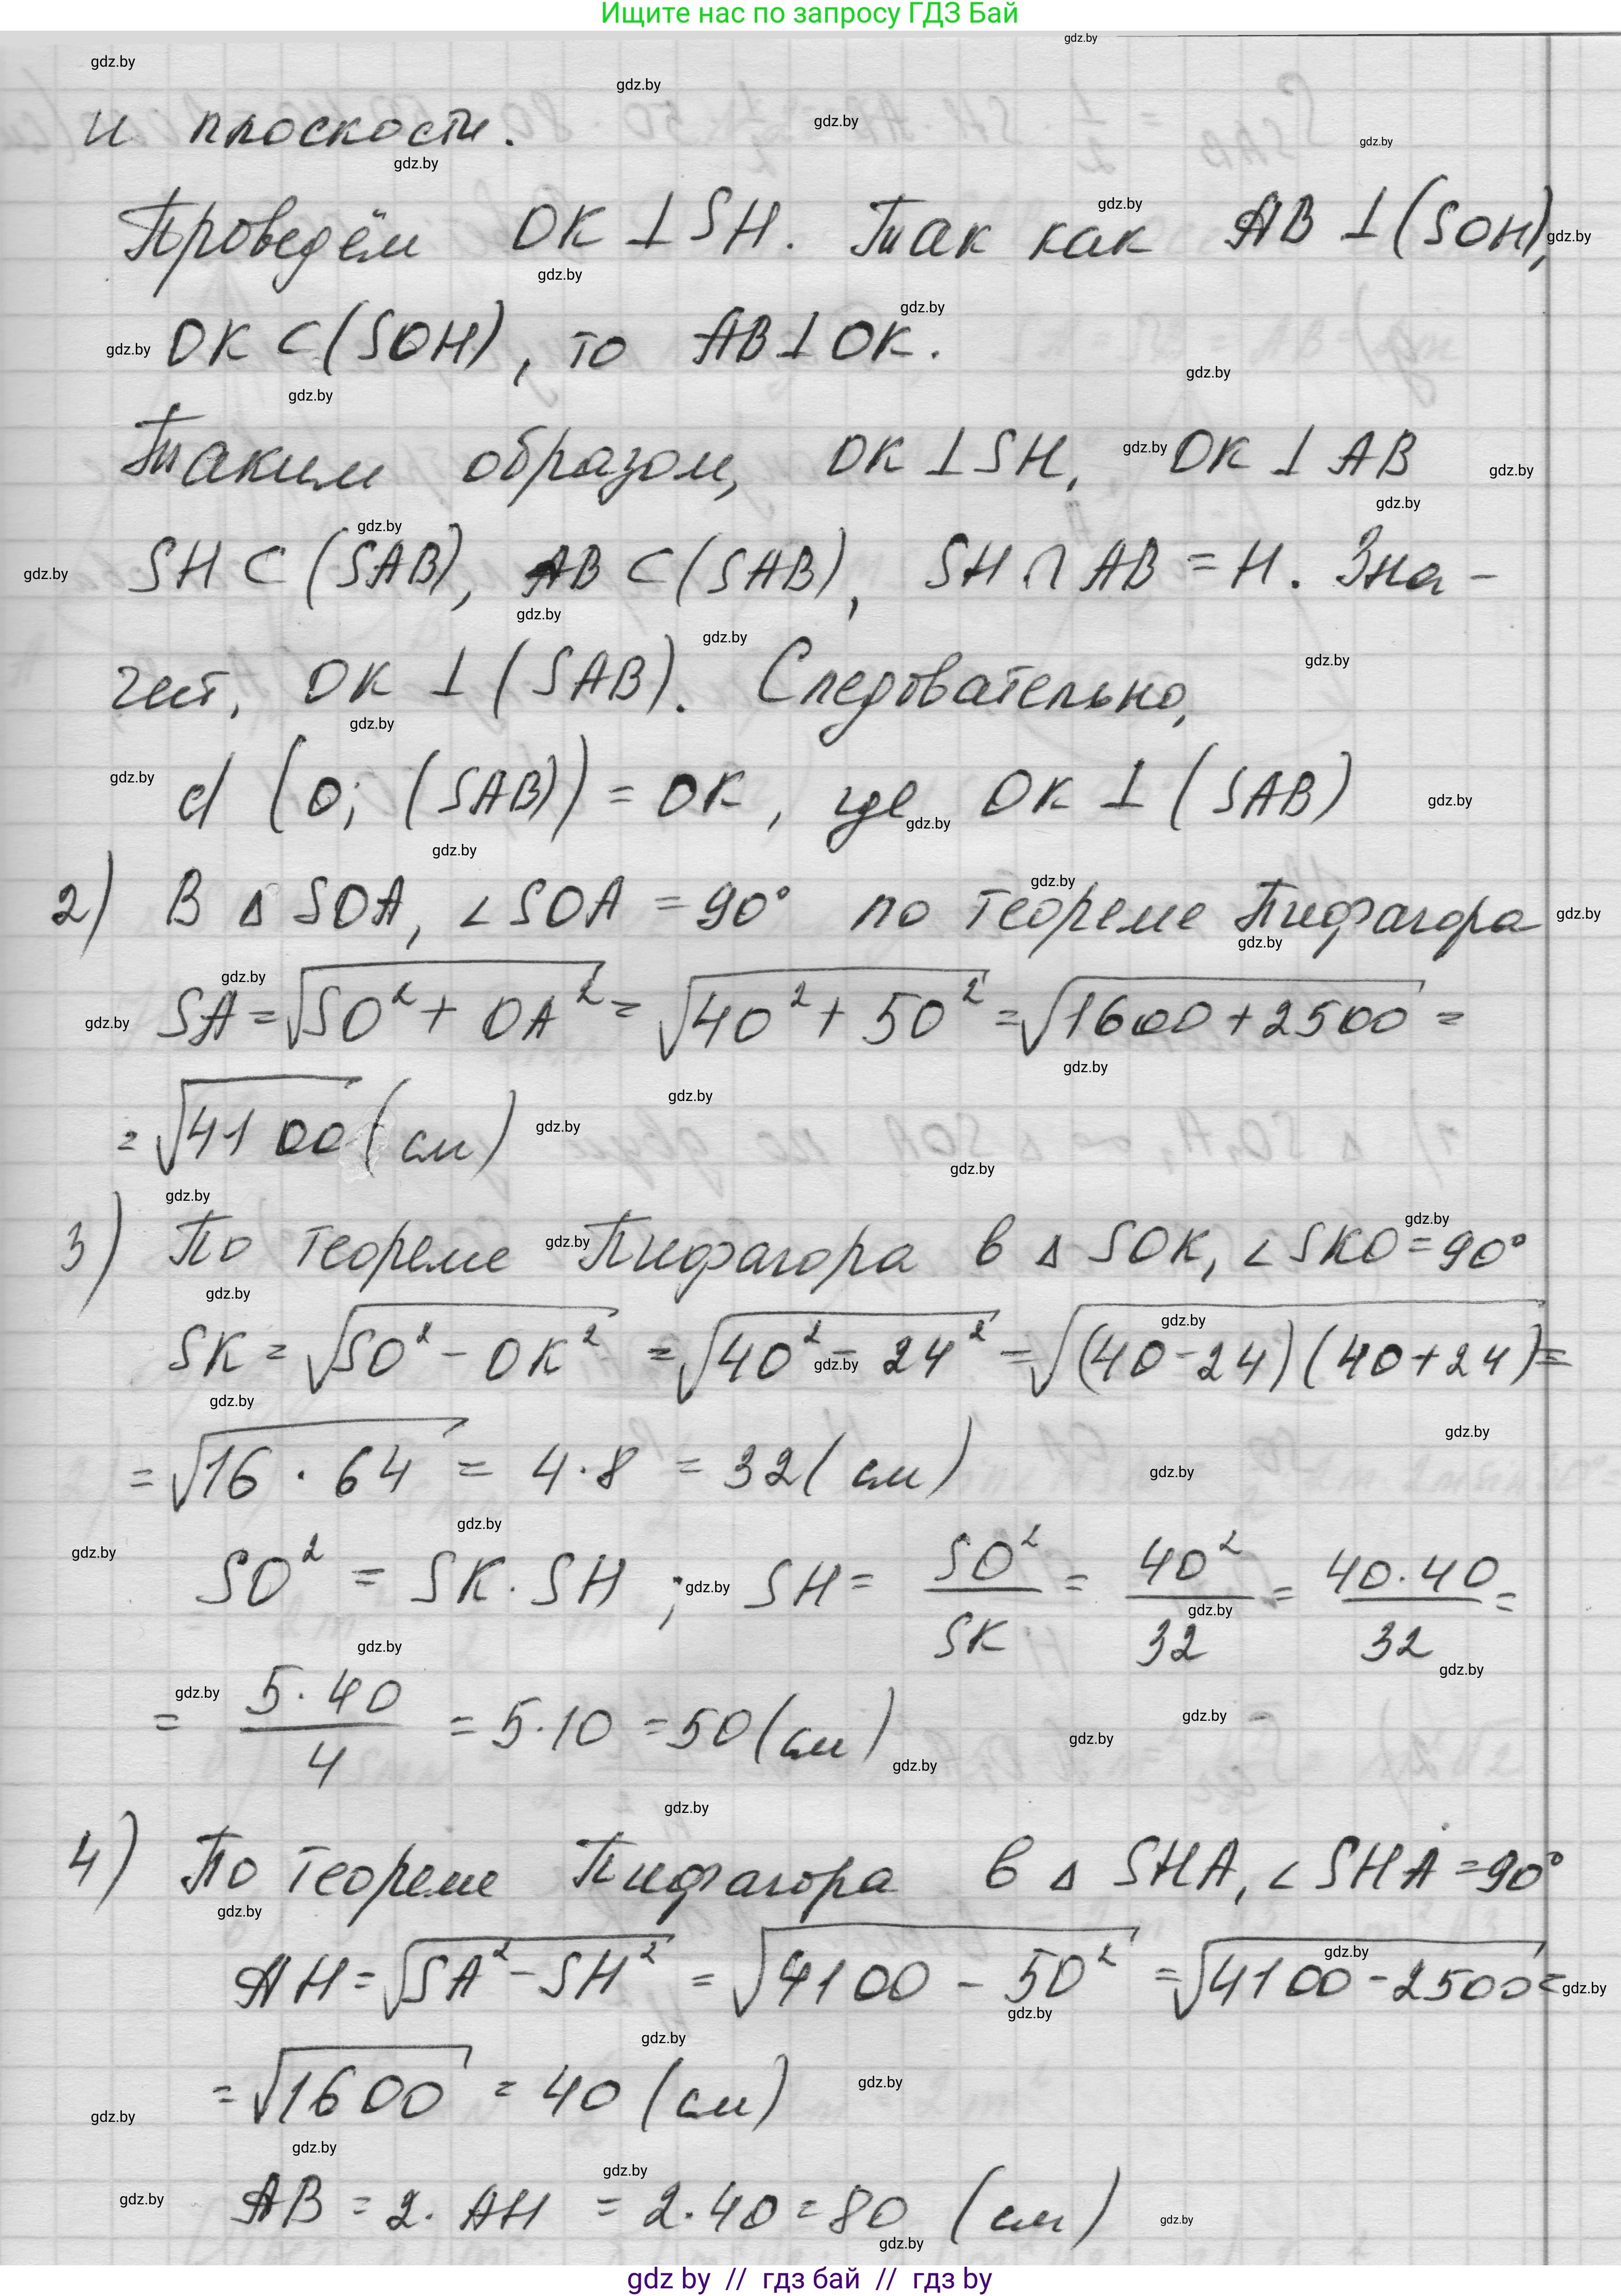 Ищите нас по запросу ГДЗ Бай
и плоскости.
Проведём OK ⊥ SH. Так как AB ⊥ (SOH),
OK ⊂ (SOH), то AB ⊥ OK.
Таким образом, OK ⊥ SH, OK ⊥ AB
SH ⊂ (SAB), AB ⊂ (SAB), SH ∩ AB = H. Зна-
чит, OK ⊥ (SAB). Следовательно,
d (O; (SAB)) = OK, где OK ⊥ (SAB)
2) В Δ SOA, ∠ SOA = 90° по теореме Пифагора
SA = √(SO² + OA²) = √(40² + 50²) = √(1600 + 2500) =
= √4100 (см)
3) По теореме Пифагора в Δ SOK, ∠ SKO = 90°
SK = √(SO² - OK²) = √(40² - 24²) = √((40 - 24)(40 + 24)) =
= √(16 · 64) = 4 · 8 = 32 (см)
SO² = SK · SH ; SH = SO²/SK = 40²/32 = 40·40/32 =
= 5·40/4 = 5·10 = 50 (см)
4) По теореме Пифагора в Δ SHA, ∠ SHA = 90°
AH = √(SA² - SH²) = √(4100 - 50²) = √(4100 - 2500) =
= √1600 = 40 (см)
AB = 2 · AH = 2 · 40 = 80 (см)
gdz by // гдз бай // гдз by